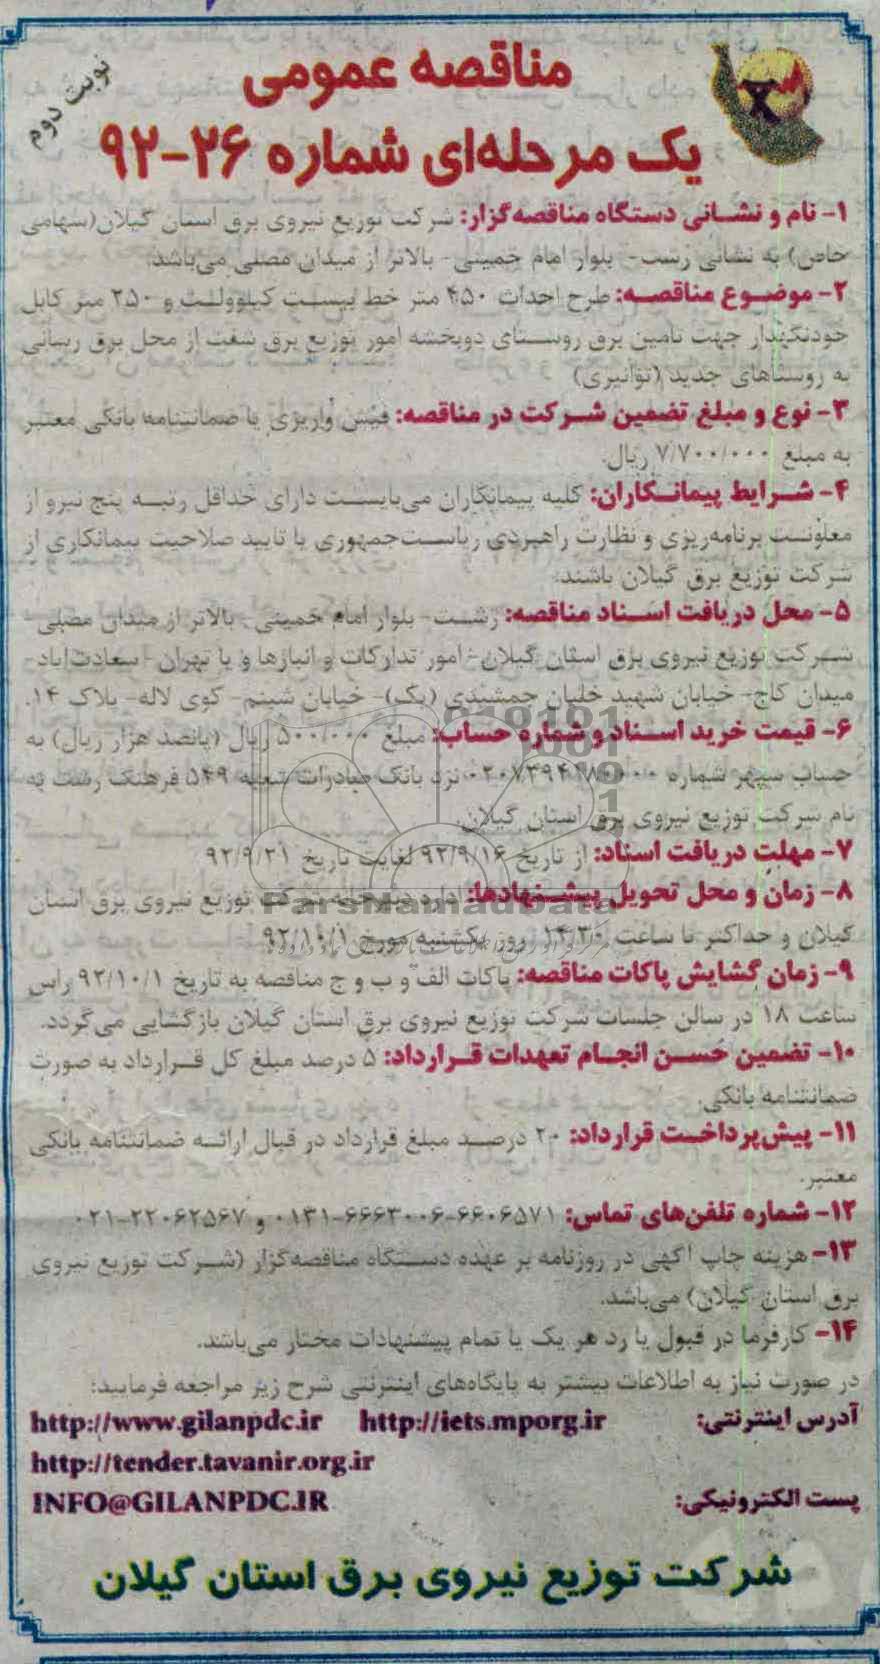 نوبت دوم
مناقصه عمومی
یک مرحله‌ای شماره ۲۶-۹۲
۱- نام و نشانی دستگاه مناقصه‌گزار: شرکت توزیع نیروی برق استان گیلان(سهامی
خاص) به نشانی رشت- بلوار امام خمینی- بالاتر از میدان مصلی می‌باشد.
۲- موضوع مناقصه: طرح احداث ۴۵۰ متر خط بیست کیلوولت و ۲۵۰ متر کابل
خودنگهدار جهت تامین برق روستای دوبخشه امور توزیع برق شفت از محل برق رسانی
به روستاهای جدید (توانیری)
۳- نوع و مبلغ تضمین شرکت در مناقصه: فیش واریزی یا ضمانتنامه بانکی معتبر
به مبلغ ۷/۷۰۰/۰۰۰ ریال.
۴- شرایط پیمانکاران: کلیه پیمانکاران می‌بایست دارای حداقل رتبه پنج نیرو از
معاونت برنامه‌ریزی و نظارت راهبردی ریاست‌جمهوری با تایید صلاحیت پیمانکاری از
شرکت توزیع برق گیلان باشند.
۵- محل دریافت اسناد مناقصه: رشت- بلوار امام خمینی- بالاتر از میدان مصلی
شرکت توزیع نیروی برق استان گیلان- امور تدارکات و انبارها و یا تهران - سعادت‌آباد-
میدان کاج- خیابان شهید خلیان جمشیدی (یک)- خیابان شبنم- کوی لاله- پلاک ۱۴.
۶- قیمت خرید اسناد و شماره حساب: مبلغ ۵۰۰/۰۰۰ ریال (پانصد هزار ریال) به
حساب سپهر شماره نزد بانک صادرات شعبه ۵۴۹ فرهنگ رشت به
نام شرکت توزیع نیروی برق استان گیلان.
۷- مهلت دریافت اسناد: از تاریخ ۹۲/۹/۱۶ لغایت تاریخ ۹۲/۹/۲۱
۸- زمان و محل تحویل پیشنهادها: اداره دبیرخانه شرکت توزیع نیروی برق استان
گیلان و حداکثر تا ساعت ۱۴:۳۰ روز یکشنبه مورخ ۹۲/۱۰/۱
۹- زمان گشایش پاکات مناقصه: پاکات الف و ب و ج مناقصه به تاریخ ۹۲/۱۰/۱ راس
ساعت ۱۸ در سالن جلسات شرکت توزیع نیروی برق استان گیلان بازگشایی می‌گردد.
۱۰- تضمین حسن انجام تعهدات قرارداد: ۵ درصد مبلغ کل قرارداد به صورت
ضمانتنامه بانکی.
۱۱- پیش‌پرداخت قرارداد: ۲۰ درصد مبلغ قرارداد در قبال ارائه ضمانتنامه بانکی
معتبر.
۱۲- شماره تلفن‌های تماس: ۶۶۰۶۵۷۱-۶۶۶۳۰۰۶-۰۱۳۱ و ۲۲۰۶۲۵۶۷-۰۲۱
۱۳- هزینه چاپ آگهی در روزنامه بر عهده دستگاه مناقصه‌گزار (شرکت توزیع نیروی
برق استان گیلان) می‌باشد.
۱۴- کارفرما در قبول یا رد هر یک یا تمام پیشنهادات مختار می‌باشد.
در صورت نیاز به اطلاعات بیشتر به پایگاه‌های اینترنتی شرح زیر مراجعه فرمایید:
آدرس اینترنتی: http://iets.mporg.ir http://www.gilanpdc.ir
http://tender.tavanir.org.ir
پست الکترونیکی: INFO@GILANPDC.IR
شرکت توزیع نیروی برق استان گیلان
ParsNamadData